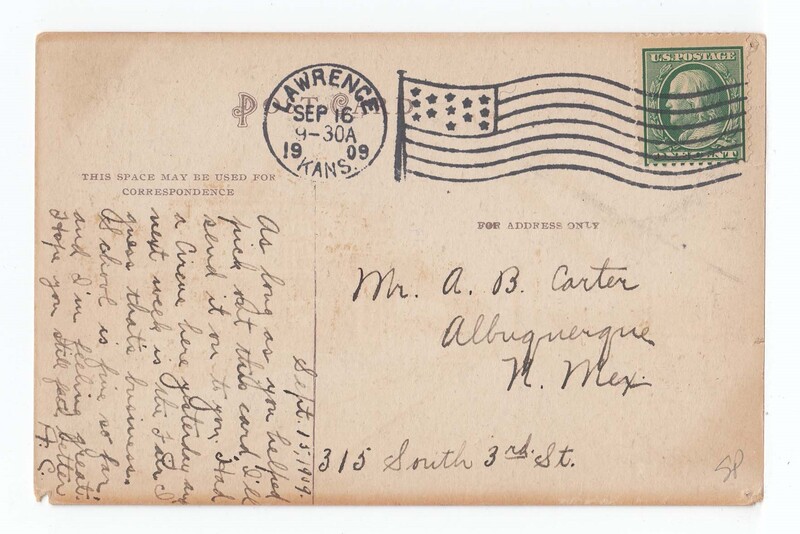 POST CARD
LAWRENCE
SEP 16
9-30A
19 09
KANS.
U.S. POSTAGE
ONE CENT
THIS SPACE MAY BE USED FOR
CORRESPONDENCE
FOR ADDRESS ONLY
Sept. 15, 1909.
As long as you helped
pick out this card I'll
send it on to you. Had
a Circus here yesterday and
next week is the Fair I
guess that's business.
School is fine so far,
and I'm feeling great.
Hope you still feel better
Mr. A. B. Carter
Albuquerque
N. Mex.
315 South 3rd. St.